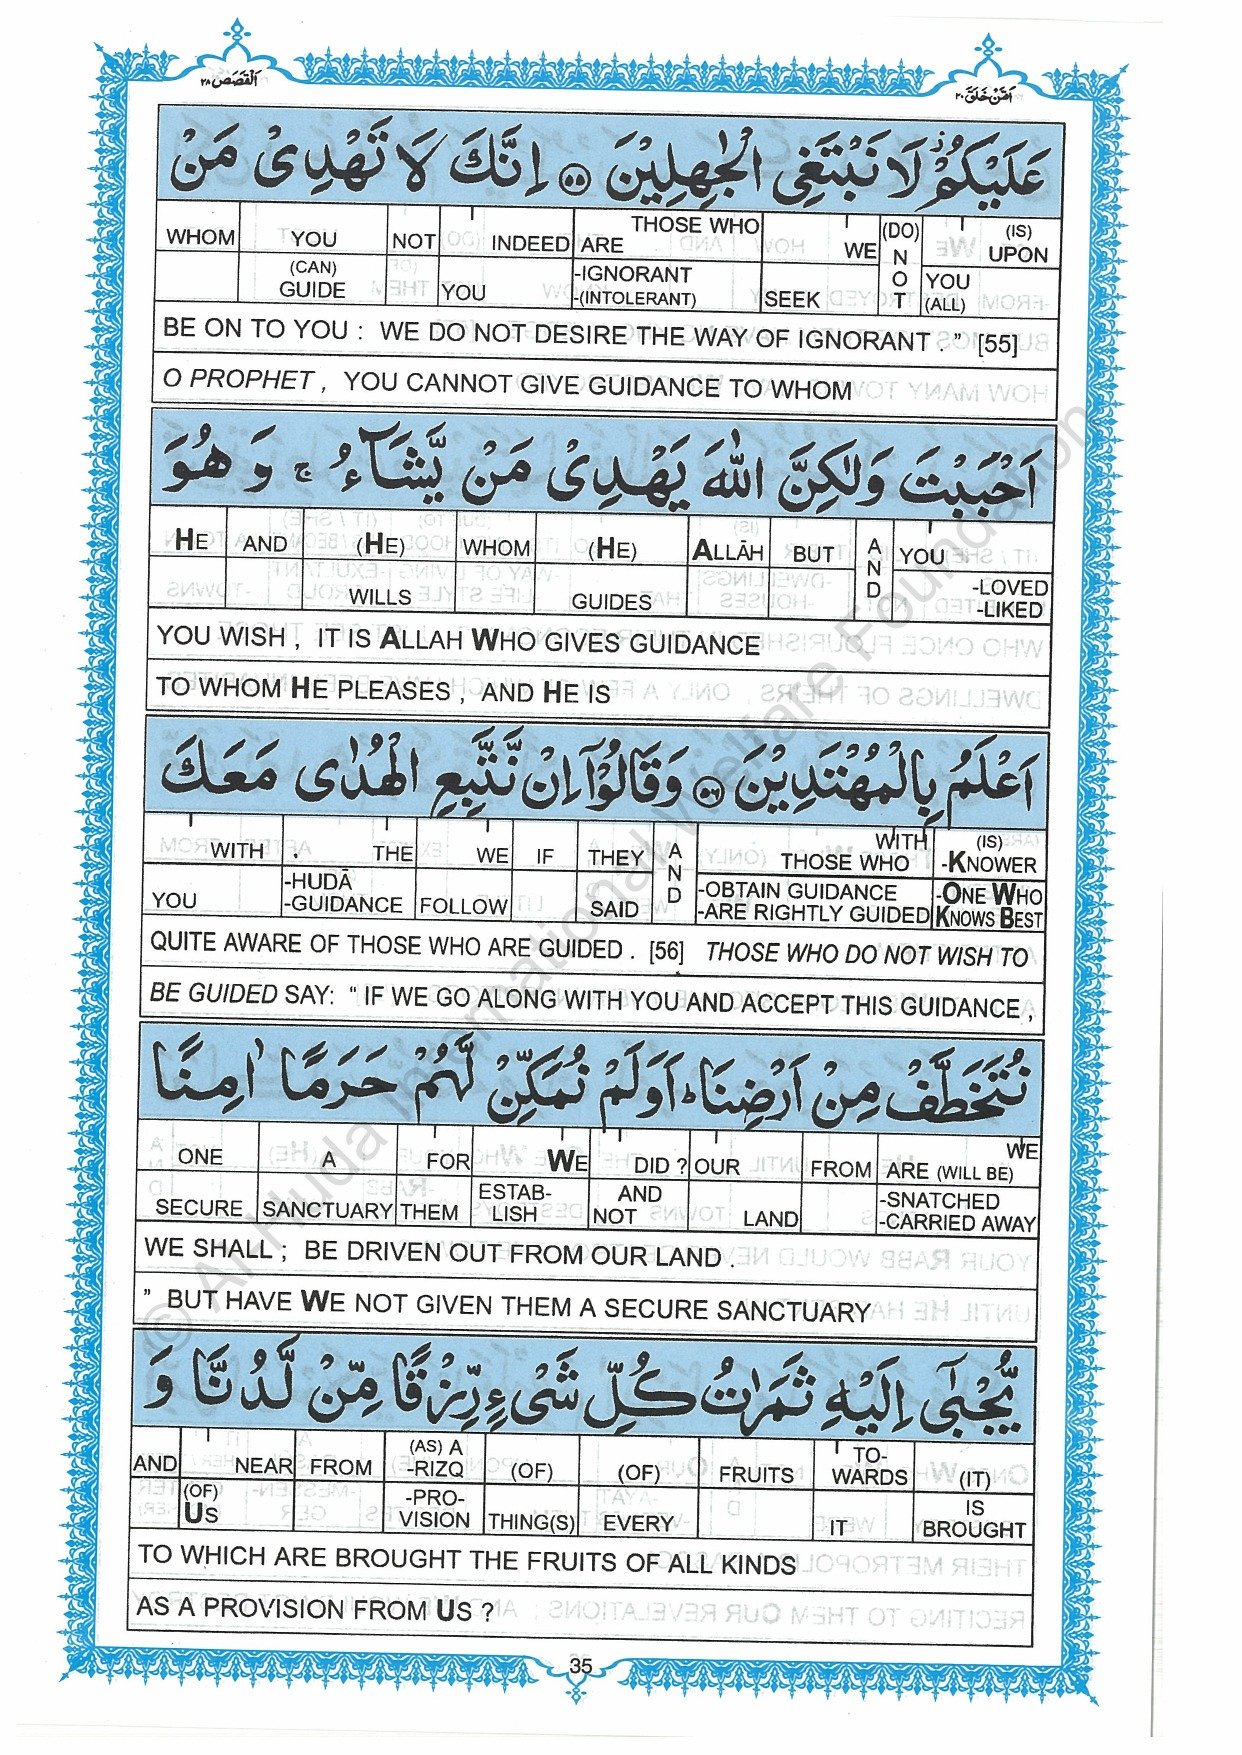 اَلْقَصَص ٢٨
اَمَّنْ خَلَقَ ٢٠
عَلَيْكُمْ ز لَا نَبْتَغِى الْجٰهِلِيْنَ ۝٥٥ اِنَّكَ لَا تَهْدِىْ مَنْ
WHOM YOU NOT INDEED THOSE WHO ARE WE (DO) NOT (IS) UPON
(CAN) GUIDE YOU -IGNORANT -(INTOLERANT) SEEK YOU (ALL)
BE ON TO YOU : WE DO NOT DESIRE THE WAY OF IGNORANT . ” [55]
O PROPHET , YOU CANNOT GIVE GUIDANCE TO WHOM
اَحْبَبْتَ وَلٰكِنَّ اللّٰهَ يَهْدِىْ مَنْ يَّشَآءُ ج وَهُوَ
HE AND (HE) WHOM (HE) ALLĀH BUT AND YOU
WILLS GUIDES -LOVED -LIKED
YOU WISH , IT IS ALLAH WHO GIVES GUIDANCE
TO WHOM HE PLEASES , AND HE IS
اَعْلَمُ بِالْمُهْتَدِيْنَ ۝٥٦ وَقَالُوْٓا اِنْ نَّتَّبِعِ الْهُدٰى مَعَكَ
WITH THE WE IF THEY AND WITH THOSE WHO (IS) -KNOWER
YOU -HUDĀ -GUIDANCE FOLLOW SAID -OBTAIN GUIDANCE -ARE RIGHTLY GUIDED -ONE WHO KNOWS BEST
QUITE AWARE OF THOSE WHO ARE GUIDED . [56] THOSE WHO DO NOT WISH TO
BE GUIDED SAY: “ IF WE GO ALONG WITH YOU AND ACCEPT THIS GUIDANCE ,
نُتَخَطَّفْ مِنْ اَرْضِنَا ط اَوَلَمْ نُمَكِّنْ لَّهُمْ حَرَمًا اٰمِنًا
ONE A FOR WE DID ? OUR FROM WE ARE (WILL BE)
SECURE SANCTUARY THEM ESTAB- LISH AND NOT LAND -SNATCHED -CARRIED AWAY
WE SHALL ; BE DRIVEN OUT FROM OUR LAND .
” BUT HAVE WE NOT GIVEN THEM A SECURE SANCTUARY
يُّجْبٰٓى اِلَيْهِ ثَمَرٰتُ كُلِّ شَىْءٍ رِّزْقًا مِّنْ لَّدُنَّا وَ
AND NEAR FROM (AS) A -RIZQ (OF) (OF) FRUITS TO- WARDS (IT)
(OF) US -PRO- VISION THING(S) EVERY IT IS BROUGHT
TO WHICH ARE BROUGHT THE FRUITS OF ALL KINDS
AS A PROVISION FROM US ?
35
© Al-Huda International Welfare Foundation